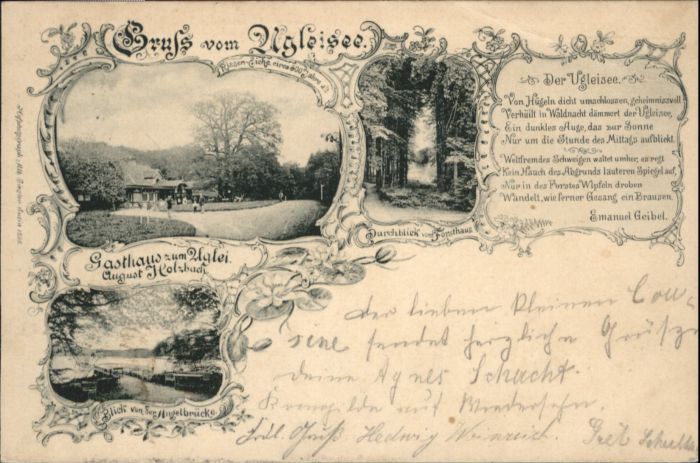 Gruss vom Ugleisee.
Riesen-Eiche circa 600 Jahre alt
Gasthaus zum Uglei.
August Holzbach.
Durchblick vom Forsthaus
Blick von der Angelbrücke
Der Ugleisee.
Von Hügeln dicht umschlossen, geheimnissvoll
Verhüllt in Waldnacht dämmert der Ugleisee,
Ein dunkles Auge, das zur Sonne
Nur um die Stunde des Mittags aufblickt.
Weltfremdes Schweigen waltet umher; es regt
Kein Hauch des Abgrunds lauteren Spiegel auf,
Nur in des Forstes Wipfeln droben
Wandelt, wie ferner Gesang ein Brausen.
Emanuel Geibel.
Der lieben kleinen Cou-
sine sendet herzliche Grüße
deine Agnes Schacht.
auf Wiedersehn
Gruß Hedwig Weinreich.